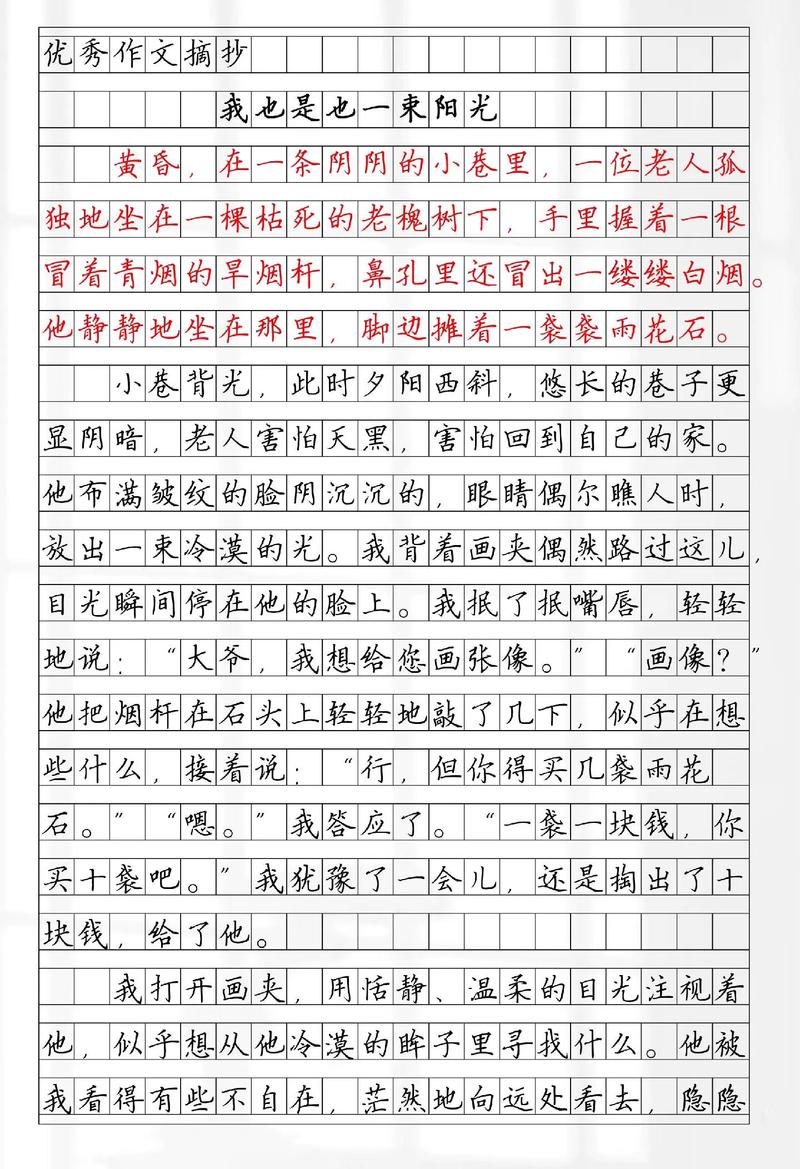 优秀作文摘抄
我也是也一束阳光
黄昏，在一条阴阴的小巷里，一位老人孤
独地坐在一棵枯死的老槐树下，手里握着一根
冒着青烟的旱烟杆，鼻孔里还冒出一缕缕白烟。
他静静地坐在那里，脚边摊着一袋袋雨花石。
小巷背光，此时夕阳西斜，悠长的巷子更
显阴暗，老人害怕天黑，害怕回到自己的家。
他布满皱纹的脸阴沉沉的，眼睛偶尔瞧人时，
放出一束冷漠的光。我背着画夹偶然路过这儿，
目光瞬间停在他的脸上。我抿了抿嘴唇，轻轻
地说：“大爷，我想给您画张像。”“画像？”
他把烟杆在石头上轻轻地敲了几下，似乎在想
些什么，接着说：“行，但你得买几袋雨花
石。”“嗯。”我答应了。“一袋一块钱，你
买十袋吧。”我犹豫了一会儿，还是掏出了十
块钱，给了他。
我打开画夹，用恬静、温柔的目光注视着
他，似乎想从他冷漠的眸子里寻找什么。他被
我看得有些不自在，茫然地向远处看去，隐隐